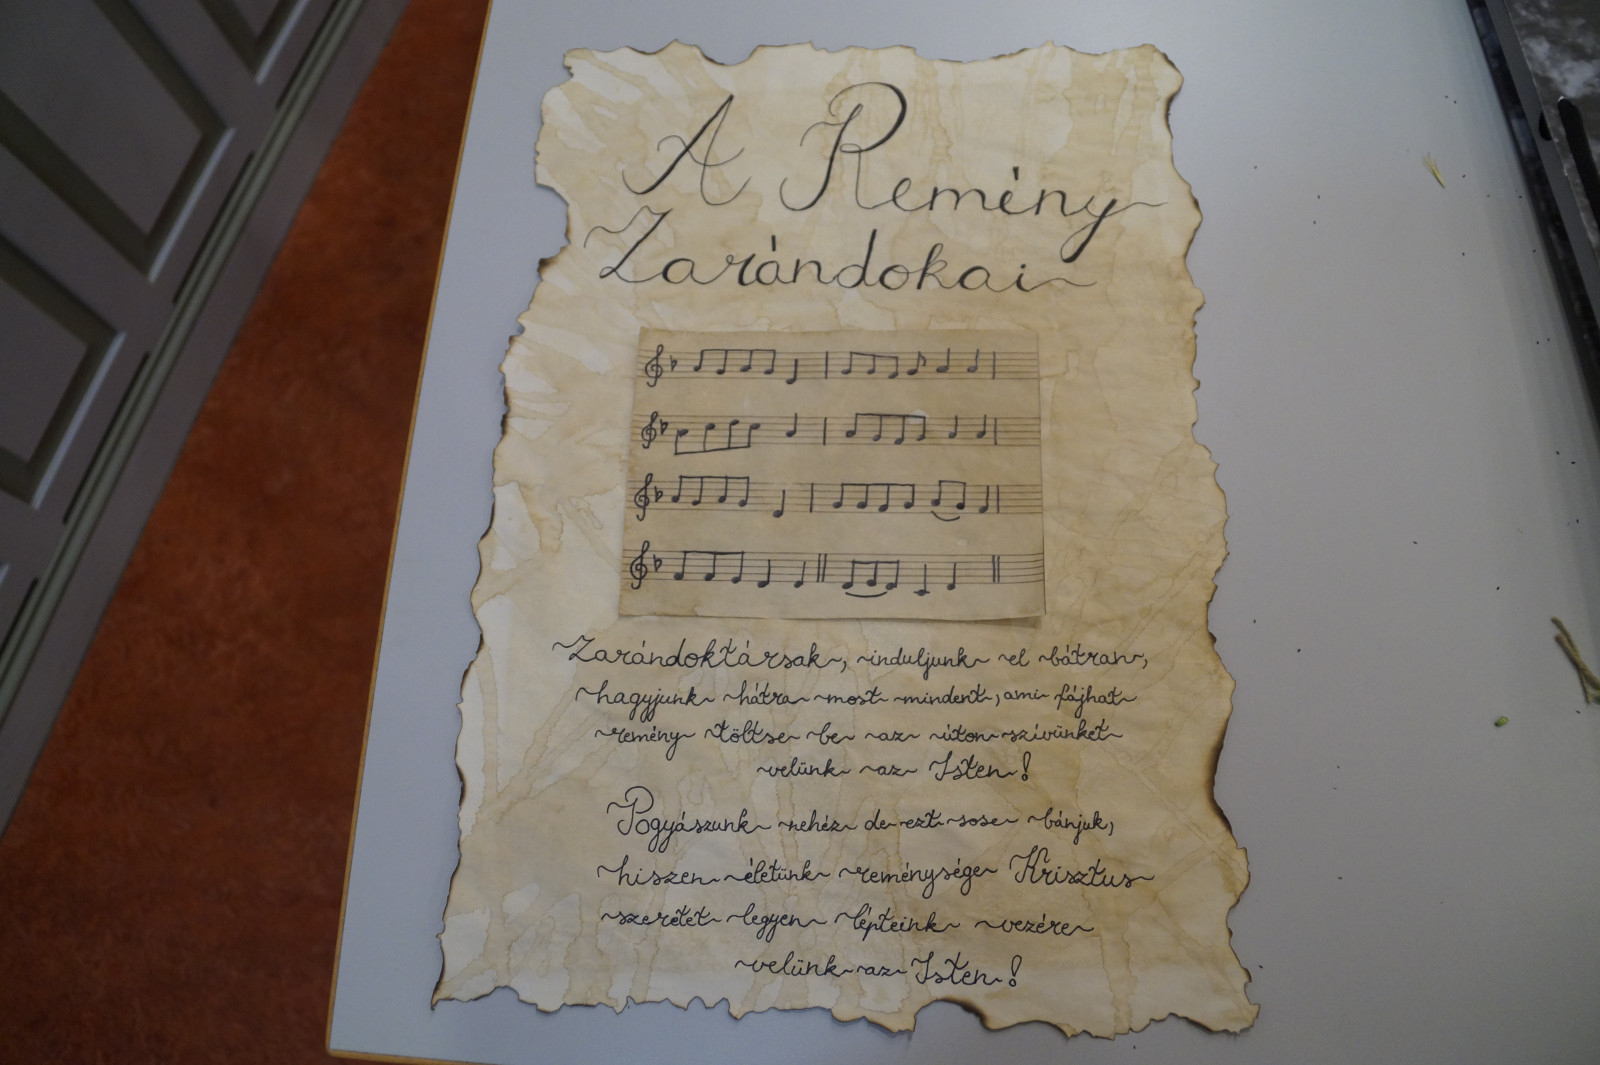 A Remény
Zarándokai
Zarándoktársak, induljunk el bátran,
hagyjunk hátra most mindent, ami fájhat
remény töltse be az úton szívünket
velünk az Isten!
Pogyászunk nehéz de ezt sose bánjuk,
hiszen életünk reménysége Krisztus
szeretet legyen lépteink vezére
velünk az Isten!